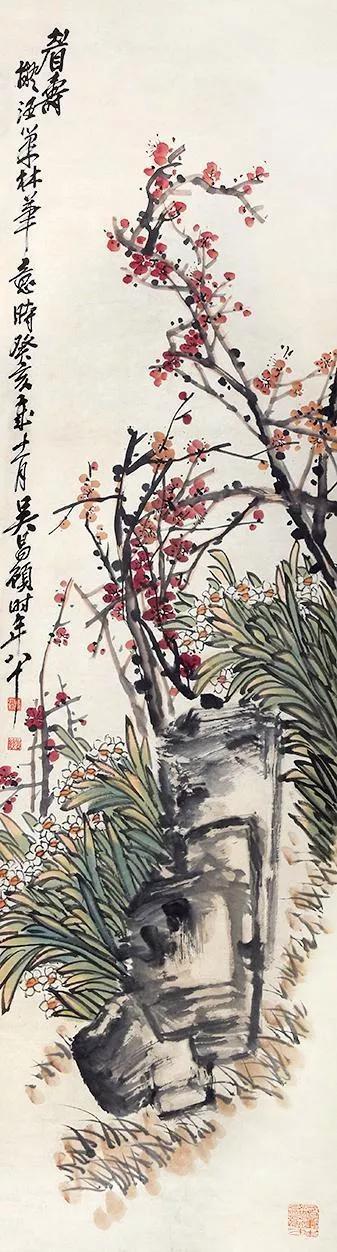 眉壽
擬汪巢林筆意時癸亥十一月吳昌碩時年八十